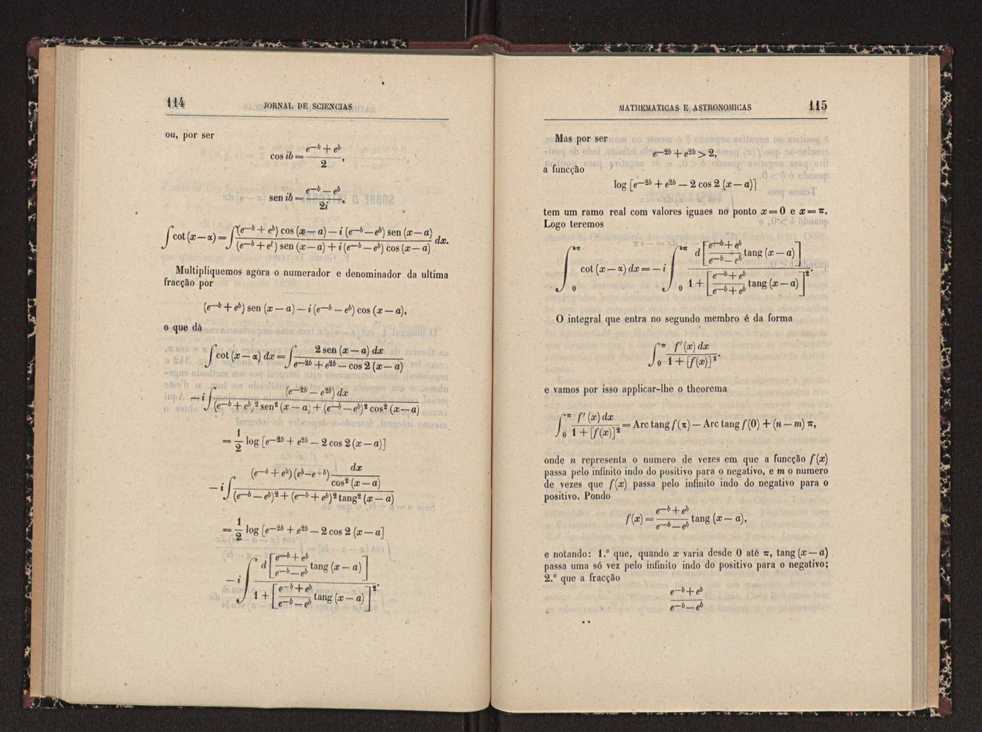 114
JORNAL DE SCIENCIAS
ou, por ser
cos ib = (e^{-b} + e^{b}) / 2,
sen ib = (e^{-b} − e^{b}) / 2i,
∫ cot (x − α) = ∫ [(e^{-b} + e^{b}) cos (x − a) − i (e^{-b} − e^{b}) sen (x − a)] / [(e^{-b} + e^{b}) sen (x − a) + i (e^{-b} − e^{b}) cos (x − a)] dx.
Multipliquemos agora o numerador e denominador da ultima
fracção por
(e^{-b} + e^{b}) sen (x − a) − i (e^{-b} − e^{b}) cos (x − a),
o que dá
∫ cot (x − α) dx = ∫ 2 sen (x − a) dx / [e^{-2b} + e^{2b} − cos 2 (x − a)]
− i ∫ (e^{-2b} − e^{2b}) dx / [(e^{-b} + e^{b})² sen² (x − a) + (e^{-b} − e^{b})² cos² (x − a)]
= 1/2 log [e^{-2b} + e^{2b} − 2 cos 2 (x − a)]
− i ∫ (e^{-b} + e^{b}) (e^{b} − e^{-b}) dx / cos² (x − a) / [(e^{-b} − e^{b})² + (e^{-b} + e^{b})² tang² (x − a)]
= 1/2 log [e^{-2b} + e^{2b} − 2 cos 2 (x − a]
− i ∫ d [(e^{-b} + e^{b}) / (e^{-b} − e^{b}) tang (x − a)] / 1 + [(e^{-b} + e^{b}) / (e^{-b} − e^{b}) tang (x − a)]².
MATHEMATICAS E ASTRONOMICAS
115
Mas por ser
e^{-2b} + e^{2b} > 2,
a funcção
log [e^{-2b} + e^{2b} − 2 cos 2 (x − a)]
tem um ramo real com valores iguaes no ponto x = 0 e x = π.
Logo teremos
∫_0^π cot (x − α) dx = − i ∫_0^π d [(e^{-b} + e^{b}) / (e^{-b} − e^{b}) tang (x − a)] / 1 + [(e^{-b} + e^{b}) / (e^{-b} + e^{b}) tang (x − a)]².
O integral que entra no segundo membro é da forma
∫_0^π f' (x) dx / 1 + [f(x)]².
e vamos por isso applicar-lhe o theorema
∫_0^π f' (x) dx / 1 + [f(x)]² = Arc tang f (π) − Arc tang f (0) + (n − m) π,
onde n representa o numero de vezes em que a funcção f (x)
passa pelo infinito indo do positivo para o negativo, e m o numero
de vezes que f (x) passa pelo infinito indo do negativo para o
positivo. Pondo
f (x) = (e^{-b} + e^{b}) / (e^{-b} − e^{b}) tang (x − a),
e notando: 1.º que, quando x varia desde 0 até π, tang (x − a)
passa uma só vez pelo infinito indo do positivo para o negativo;
2.º que a fracção
(e^{-b} + e^{b}) / (e^{-b} − e^{b})